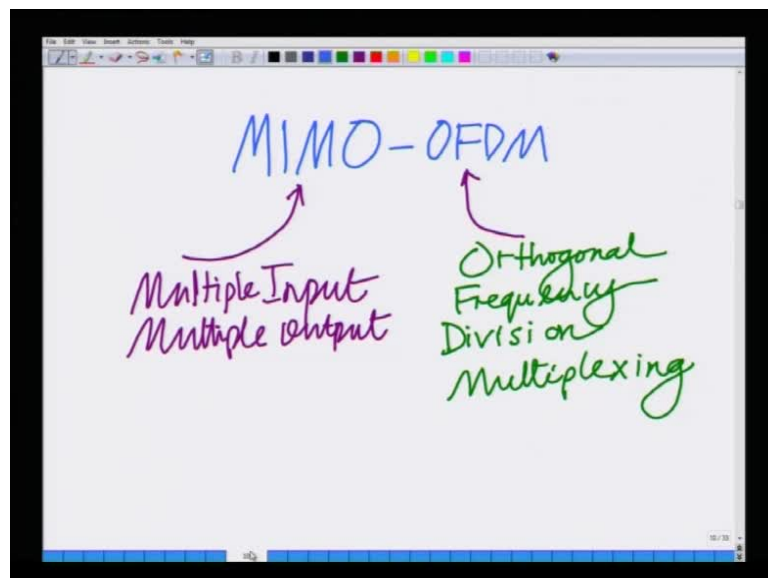 File Edit View Insert Actions Tools Help
MIMO-OFDM
Multiple Input
Multiple Output
Orthogonal
Frequency
Division
Multiplexing